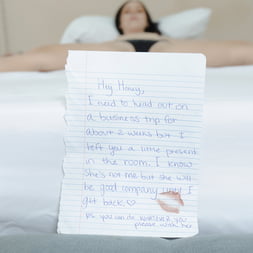 Hey Howy,
I need to head out on
a business trip for
about 2 weeks but I
left you a little present
in the room. I know
she's not me but she will
be good company until I
get back.♡
PS you can do
please